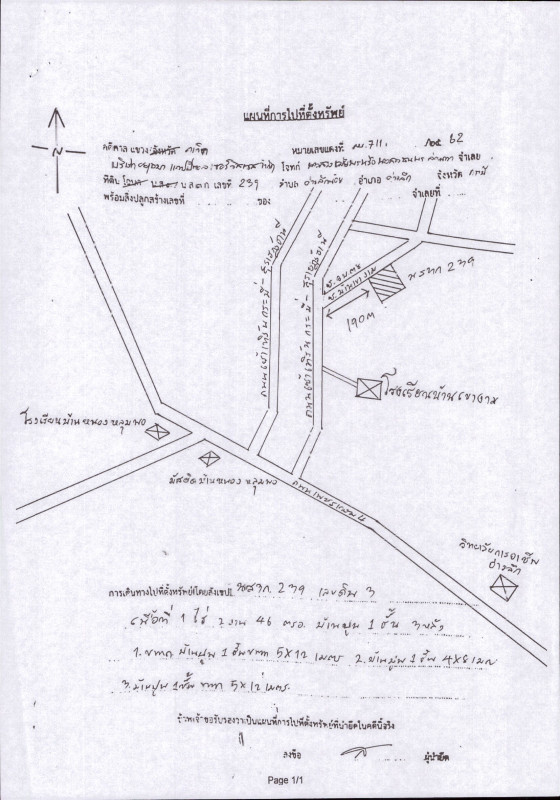 แผนที่การไปที่ตั้งทรัพย์
N
คดีศาล แขวง/จังหวัด กระบี่ หมายเลขแดงที่ ผบ.711 / 62
โจทก์ จำเลย
ที่ดิน โฉนด น.ส.3ก เลขที่ 239 ตำบล อำเภอ อ่าวลึก จังหวัด กระบี่
พร้อมสิ่งปลูกสร้างเลขที่ ของ จำเลยที่
น.ส.3ก 239
190 M
โรงเรียนบ้านเขางาม
โรงเรียนบ้านหนองหลุมพอ
มัสยิดบ้านหนองหลุมพอ
ถนนเพชรเกษม 4
วิทยาลัยการอาชีพ
อ่าวลึก
การเดินทางไปที่ตั้งทรัพย์โดยสังเขป น.ส.3ก 239 เลขที่ดิน 3
เนื้อที่ 1 ไร่ 2 งาน 46 ตรว. บ้านปูน 1 ชั้น 3 หลัง
1. ขนาด บ้านปูน 1 ชั้น ขนาด 5X12 เมตร 2. บ้านปูน 1 ชั้น 4X8 เมตร
3. บ้านปูน 1 ชั้น ขนาด 5X12 เมตร
ข้าพเจ้าขอรับรองว่าเป็นแผนที่การไปที่ตั้งทรัพย์ที่นำยึดในคดีนี้จริง
ลงชื่อ ผู้นำยึด
Page 1/1